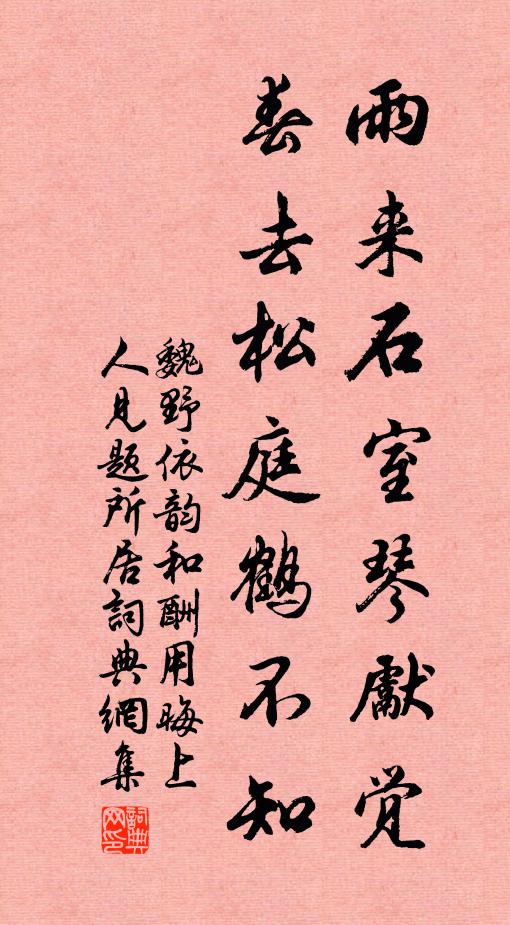 雨来石室琴獻觉
春去松庭鶴不知
魏野依韵和酬用晦上
人見题所居詞典網集
詞典网印